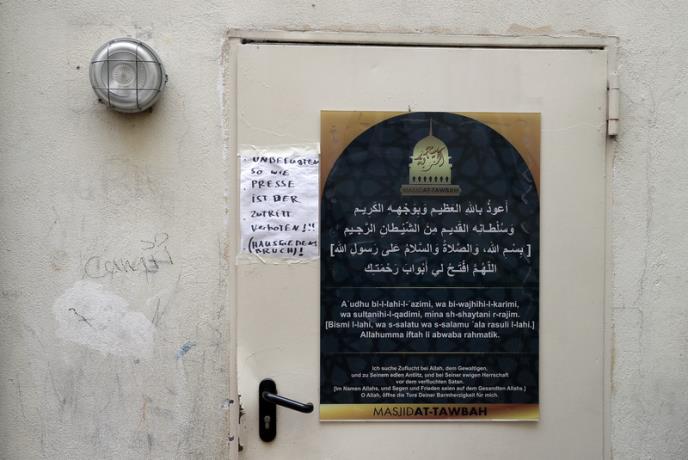 UNBEFUGTEN
SO WIE
PRESSE
IST DER
ZUTRITT
VERBOTEN!!!
مسجد التوبة
MASJIDAT-TAWBAH
أعوذ بالله العظيم وبوجهه الكريم
وسلطانه القديم من الشيطان الرجيم
[ بسم الله، والصلاة والسلام على رسول الله]
اللهم افتح لي أبواب رحمتك
A´udhu bi-l-lahi-l-´azimi, wa bi-wajhihi-l-karimi,
wa sultanihi-l-qadimi, mina sh-shaytani r-rajim.
[Bismi l-lahi, wa s-salatu wa s-salamu ´ala rasuli l-lahi.]
Allahumma iftah li abwaba rahmatik.
Ich suche Zuflucht bei Allah, dem Gewaltigen,
und zu Seinem edlen Antlitz, und bei Seiner ewigen Herrschaft
vor dem verfluchten Satan.
[Im Namen Allahs, und Segen und Frieden seien auf dem Gesandten Allahs.]
O Allah, öffne die Tore Deiner Barmherzigkeit für mich.
MASJIDAT-TAWBAH